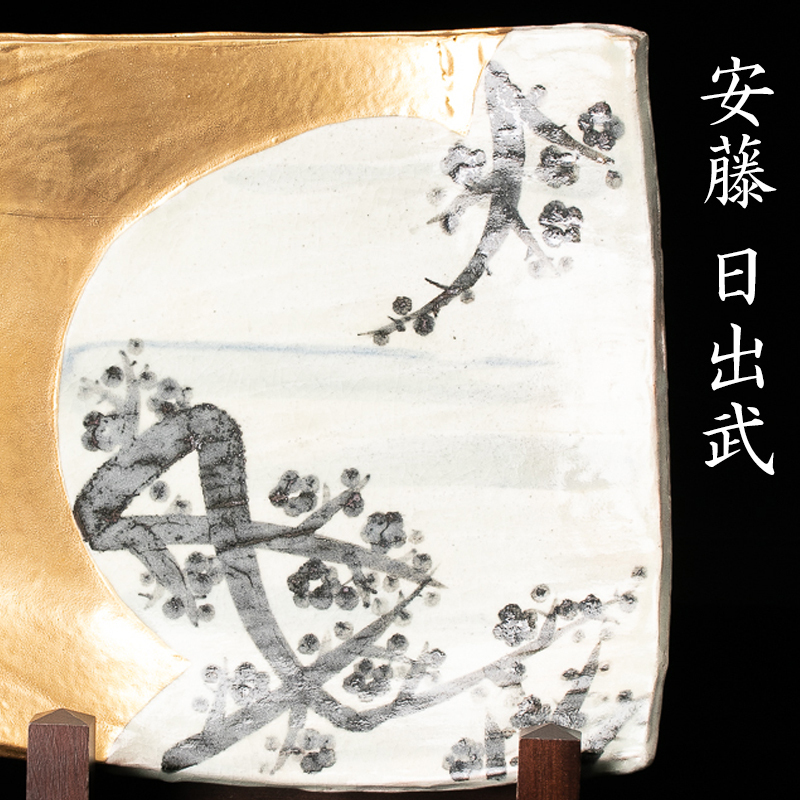 安藤 日出武